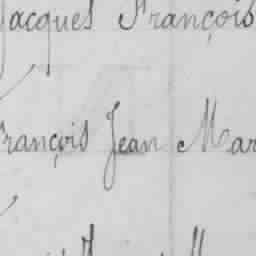 Jacques François
François Jean Mar